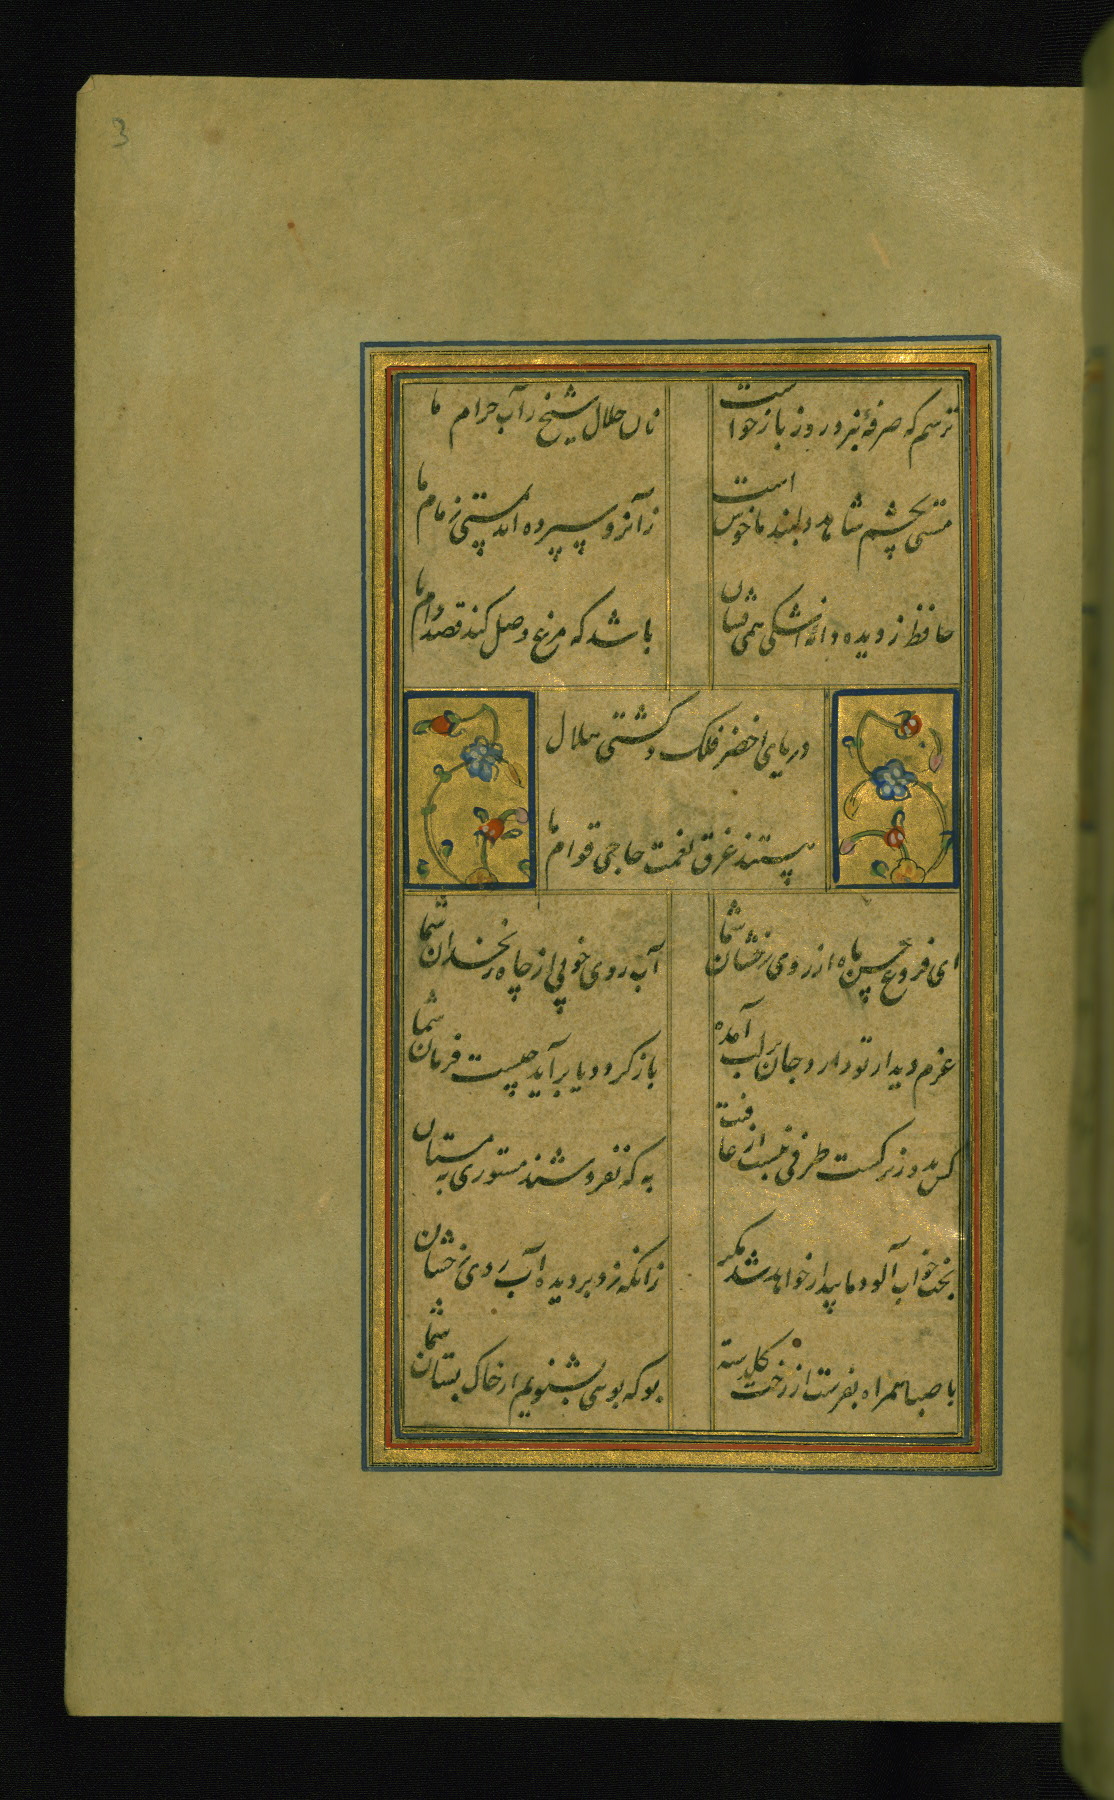 3
ترسم که صرفهٔ نبرد روز بازخواست
نان حلال شیخ ز آب حرام ما
مستی بچشم شاهد دلبند ما خوش است
زانرو سپرده اند بمستی زمام ما
حافظ ز دیده دانهٔ اشکی همی فشان
باشد که مرغ وصل کند قصد دام ما
دریای اخضر فلک و کشتی هلال
هستند غرق نعمت حاجی قوام ما
ای فروغ حسن ماه از روی رخشان شما
آب روی خوبی از چاه زنخدان شما
عزم دیدار تو دارد جان بر لب آمده
باز کردد یا برآید چیست فرمان شما
کس بدور نرکست طرفی نبست از عافیت
به که نفروشند مستوری به مستان
بخت خواب آلود ما بیدار خواهد شد مکر
زانکه زد بر دیده آب روی رخشان
با صبا همراه بفرست از رخت کلدسته
بو که بوسی بشنویم از خاک بستان شما